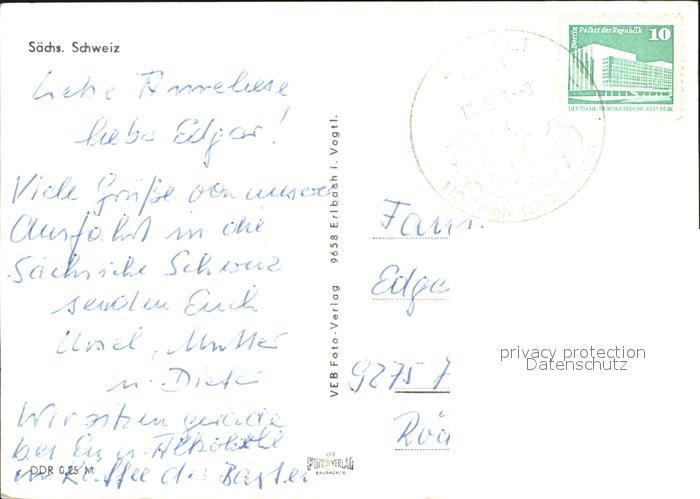 Sächs. Schweiz
Liebe Anneliese
lieber Edgar!
Viele Grüße von unserer
Ausfahrt in die
Sächsische Schweiz
senden Euch
Ursel, Mutter
u. Dieter
Wir sitzen gerade
bei Eis u.
im Kaffee der Bastei
DDR 0,25 M
VEB Foto-Verlag 9658 Erlbach i. Vogtl.
VEB
FOTO-VERLAG
ERLBACH/V.
Berlin Palast der Republik 10
DEUTSCHE DEMOKRATISCHE REPUBLIK
Fam.
Edga
9275
privacy protection
Datenschutz